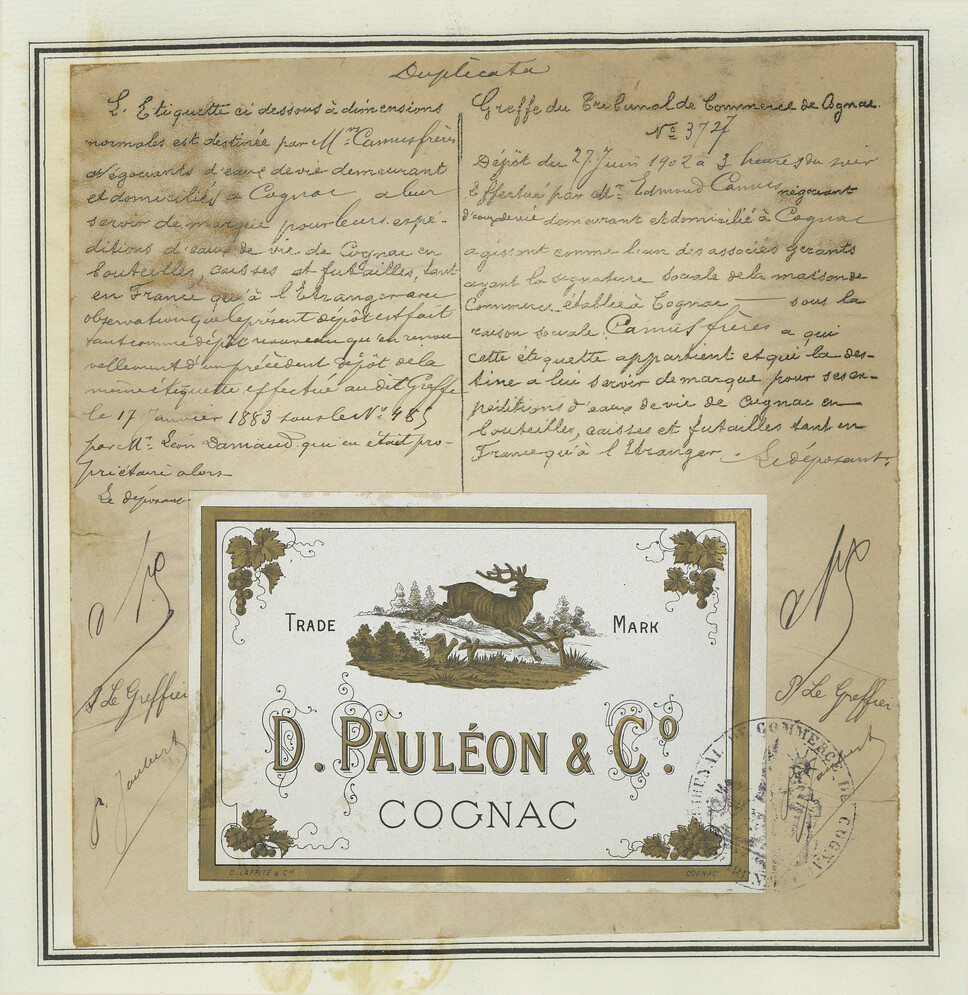 Duplicata
L'Etiquette ci dessous à dimensions
normales est destinée par Mrs Camus frères
négociants d'eaux de vie demeurant
et domiciliés à Cognac à leur
servir de marque pour leurs expé-
ditions d'eaux de vie de Cognac en
bouteilles, caisses et futailles, tant
en France qu'à l'Etranger avec
observation que le présent dépôt est fait
tant comme dépôt nouveau qu'en renou
vellement d'un précédent dépôt de la
même étiquette effectué au dit Greffe
le 17 Janvier 1883 sous le No 485
par Mr. Léon Damaud qui en était pro-
priétaire alors
Le déposant
Greffe du Tribunal de Commerce de Cognac.
No 3727
Dépôt du 27 Juin 1902 à 3 heures du soir
Effectué par Mr. Edmond Camus négociant
d'eaux de vie demeurant et domicilié à Cognac
agissant comme l'un des associés gérants
ayant la signature sociale de la maison de
Commerce établie à Cognac — sous la
raison sociale Camus frères à qui
cette étiquette appartient et qui la des-
tine à lui servir de marque pour ses ex-
péditions d'eaux de vie de Cognac en
bouteilles, caisses et futailles tant en
France qu'à l'Etranger
Le déposant.
P Le Greffier
P Le Greffier
TRADE MARK
D. PAULÉON & Co.
COGNAC
C. LAFFITE & Cie
COGNAC
TRIBUNAL DE COMMERCE DE COGNAC